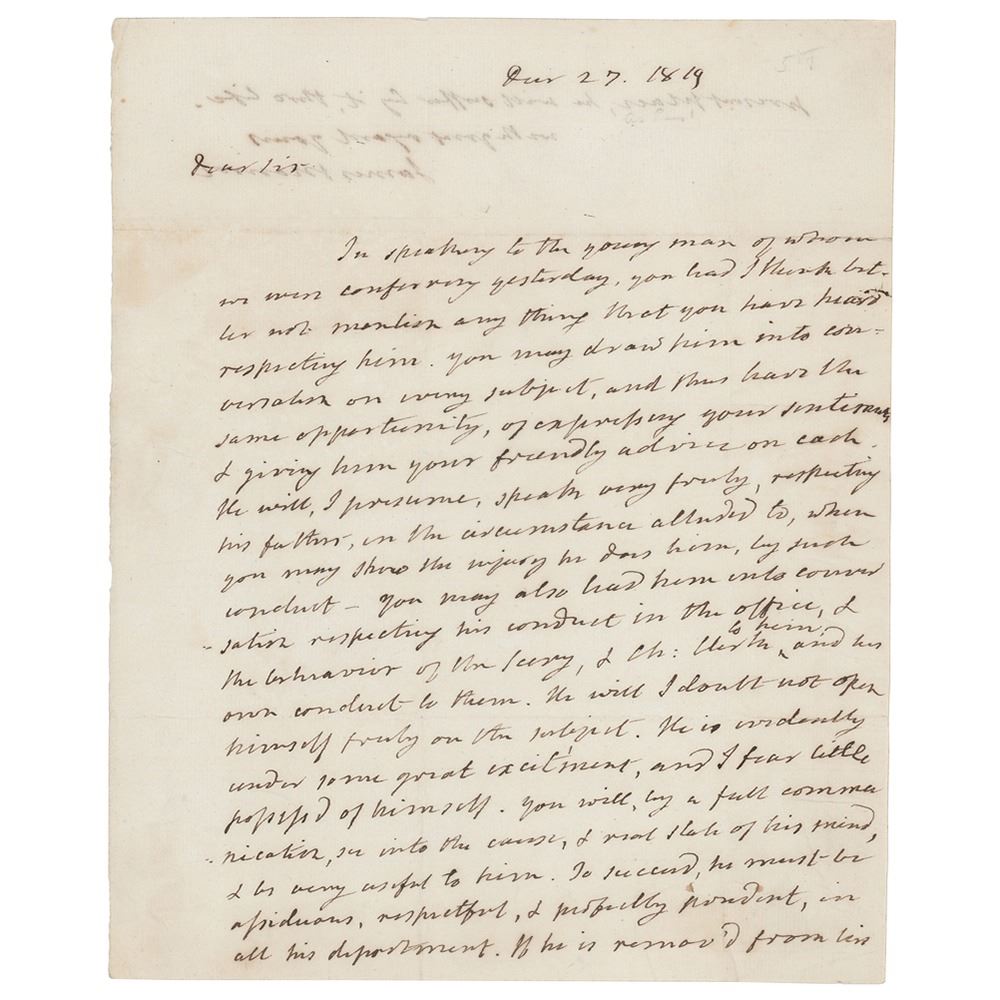 Decr 27. 1819
Dear Sir
In speaking to the young man of whom
we were conferring yesterday, you had I think bet-
ter not mention any thing that you have heard
respecting him. you may draw him into con=
versation on every subject, and thus have the
same opportunity, of expressing your sentiments
& giving him your friendly advice on each.
He will, I presume, speak very freely, respecting
his father, in the circumstance alluded to, when
you may shew the injury he does him, by such
conduct – you may also lead him into conver
-sation respecting his conduct in the office, &
the behavior of the Secry, & Ch: Clerk to him, and his
own conduct to them. He will I doubt not open
himself freely on the subject. He is evidently
under some great excitment, and I fear little
possess'd of himself. you will, by a full commu
-nication, see into the cause, & real state of his mind,
& be very useful to him. To succeed, he must be
assiduous, respectful, & perfectly prudent, in
all his deportment. If he is remov'd from his